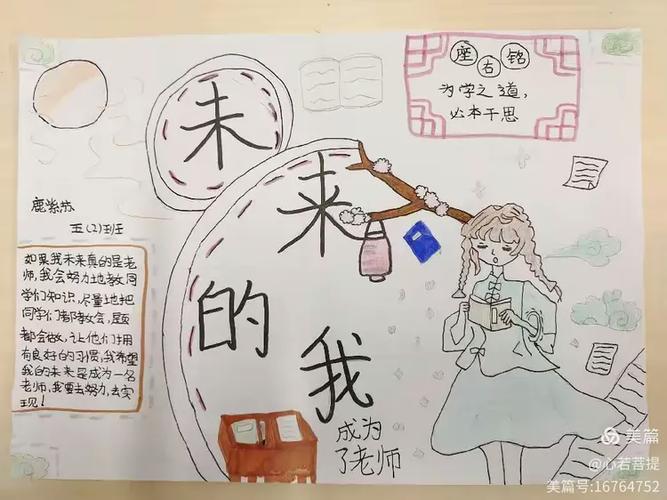 未
来
的
我
成为
了老师
座右铭
为学之道，
必本于思
鹿紫
五(2)班
如果我未来真的是老
师，我会努力地教同
学们知识，尽量地把
同学们都教会，题
都会做，让他们拥
有良好的习惯，我希望
我的未来是成为一名
老师，我要去努力，去实
现！
美篇
@心若菩提
美篇号:16764752